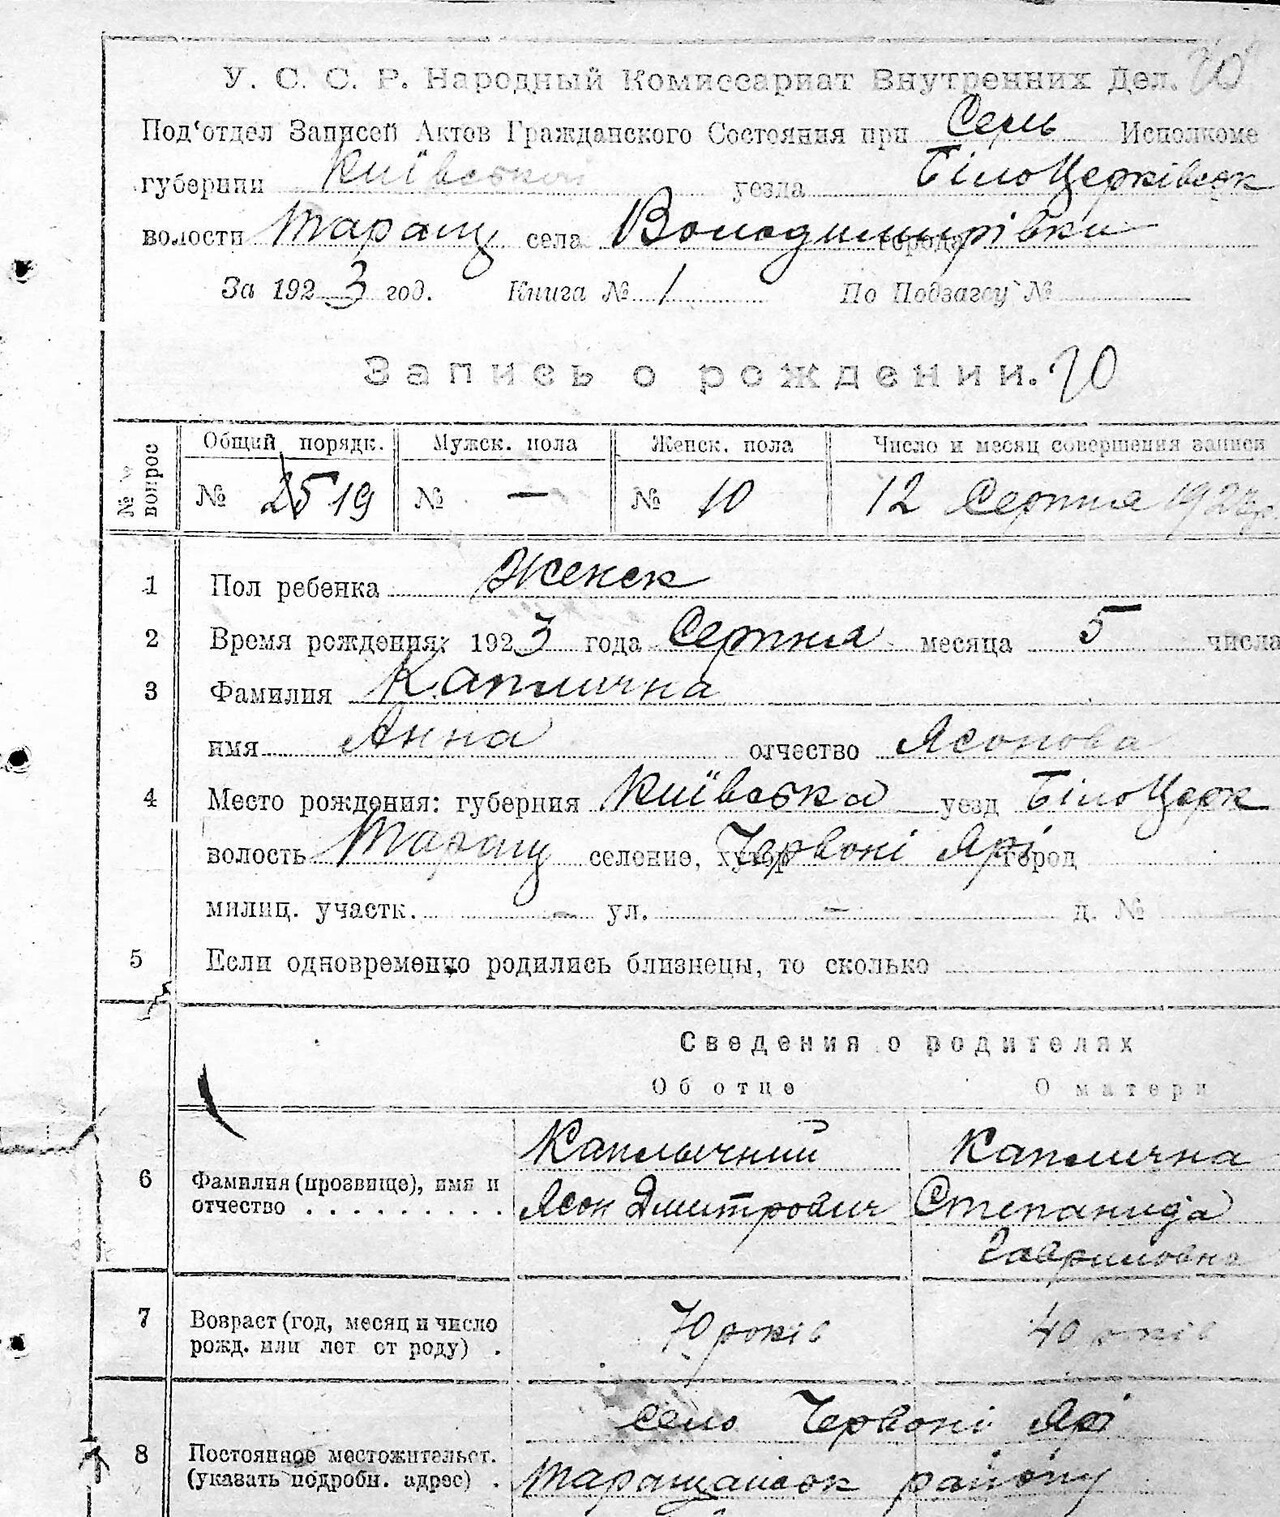 У. С. С. Р. Народный Комиссариат Внутренних Дел. 70
Под'отдел Записей Актов Гражданского Состояния при Сель Исполкоме
губернии Київськ уезда БілоЦерківськ
волости Таращ села города Володимирівки
За 1923 год. Книга № 1 По Подзагсу №
Запись о рождении. 70
№ вопрос Общий порядк. Мужск. пола Женск. пола Число и месяц совершения записи
№ 25 19 № — № 10 12 Серпня 1923р.
1 Пол ребенка Женск
2 Время рождения: 1923 года Серпня месяца 5 числа
3 Фамилия Каплична
имя Анна отчество Ясонова
4 Место рождения: губерния Київська уезд БілоЦерк
волость Таращ селение, хутор Червоні Ярі город
милиц. участк. — ул. — д. №
5 Если одновременно родились близнецы, то сколько
Сведения о родителях
Об отце О матери
Капличний Каплична
6 Фамилия (прозвище), имя и
отчество . . . . . . . . . Ясон Дмитрович Степанида
Гавриловна
7 Возраст (год, месяц и число
рожд. или лет от роду) . 70 років 40 років
село Червоні Ярі
8 Постоянное местожительст.
(указать подробн. адрес) . Таращанськ району